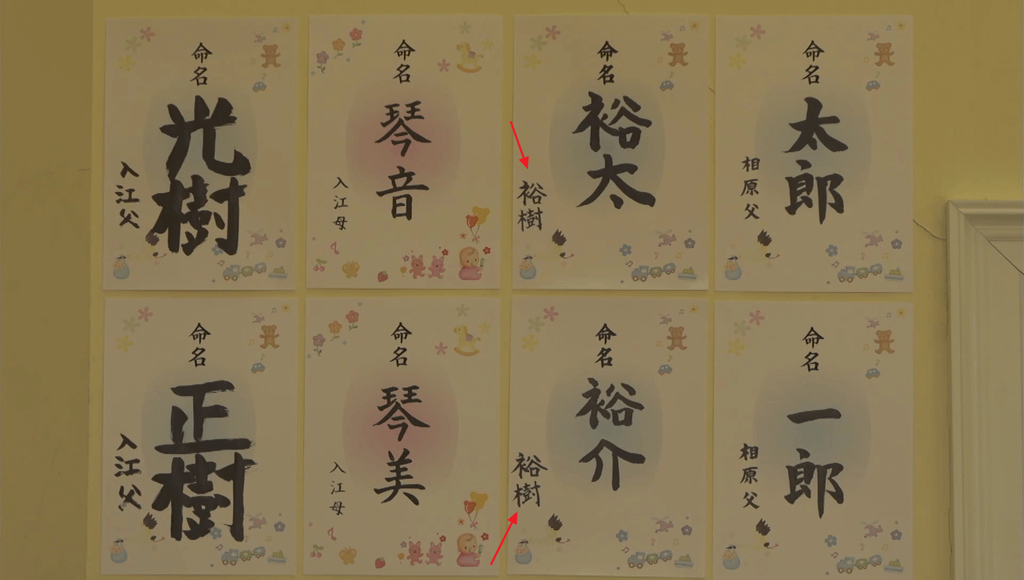 命名
光樹
入江父
命名
琴音
入江母
命名
裕太
裕樹
命名
太郎
相原父
命名
正樹
入江父
命名
琴美
入江母
命名
裕介
裕樹
命名
一郎
相原父